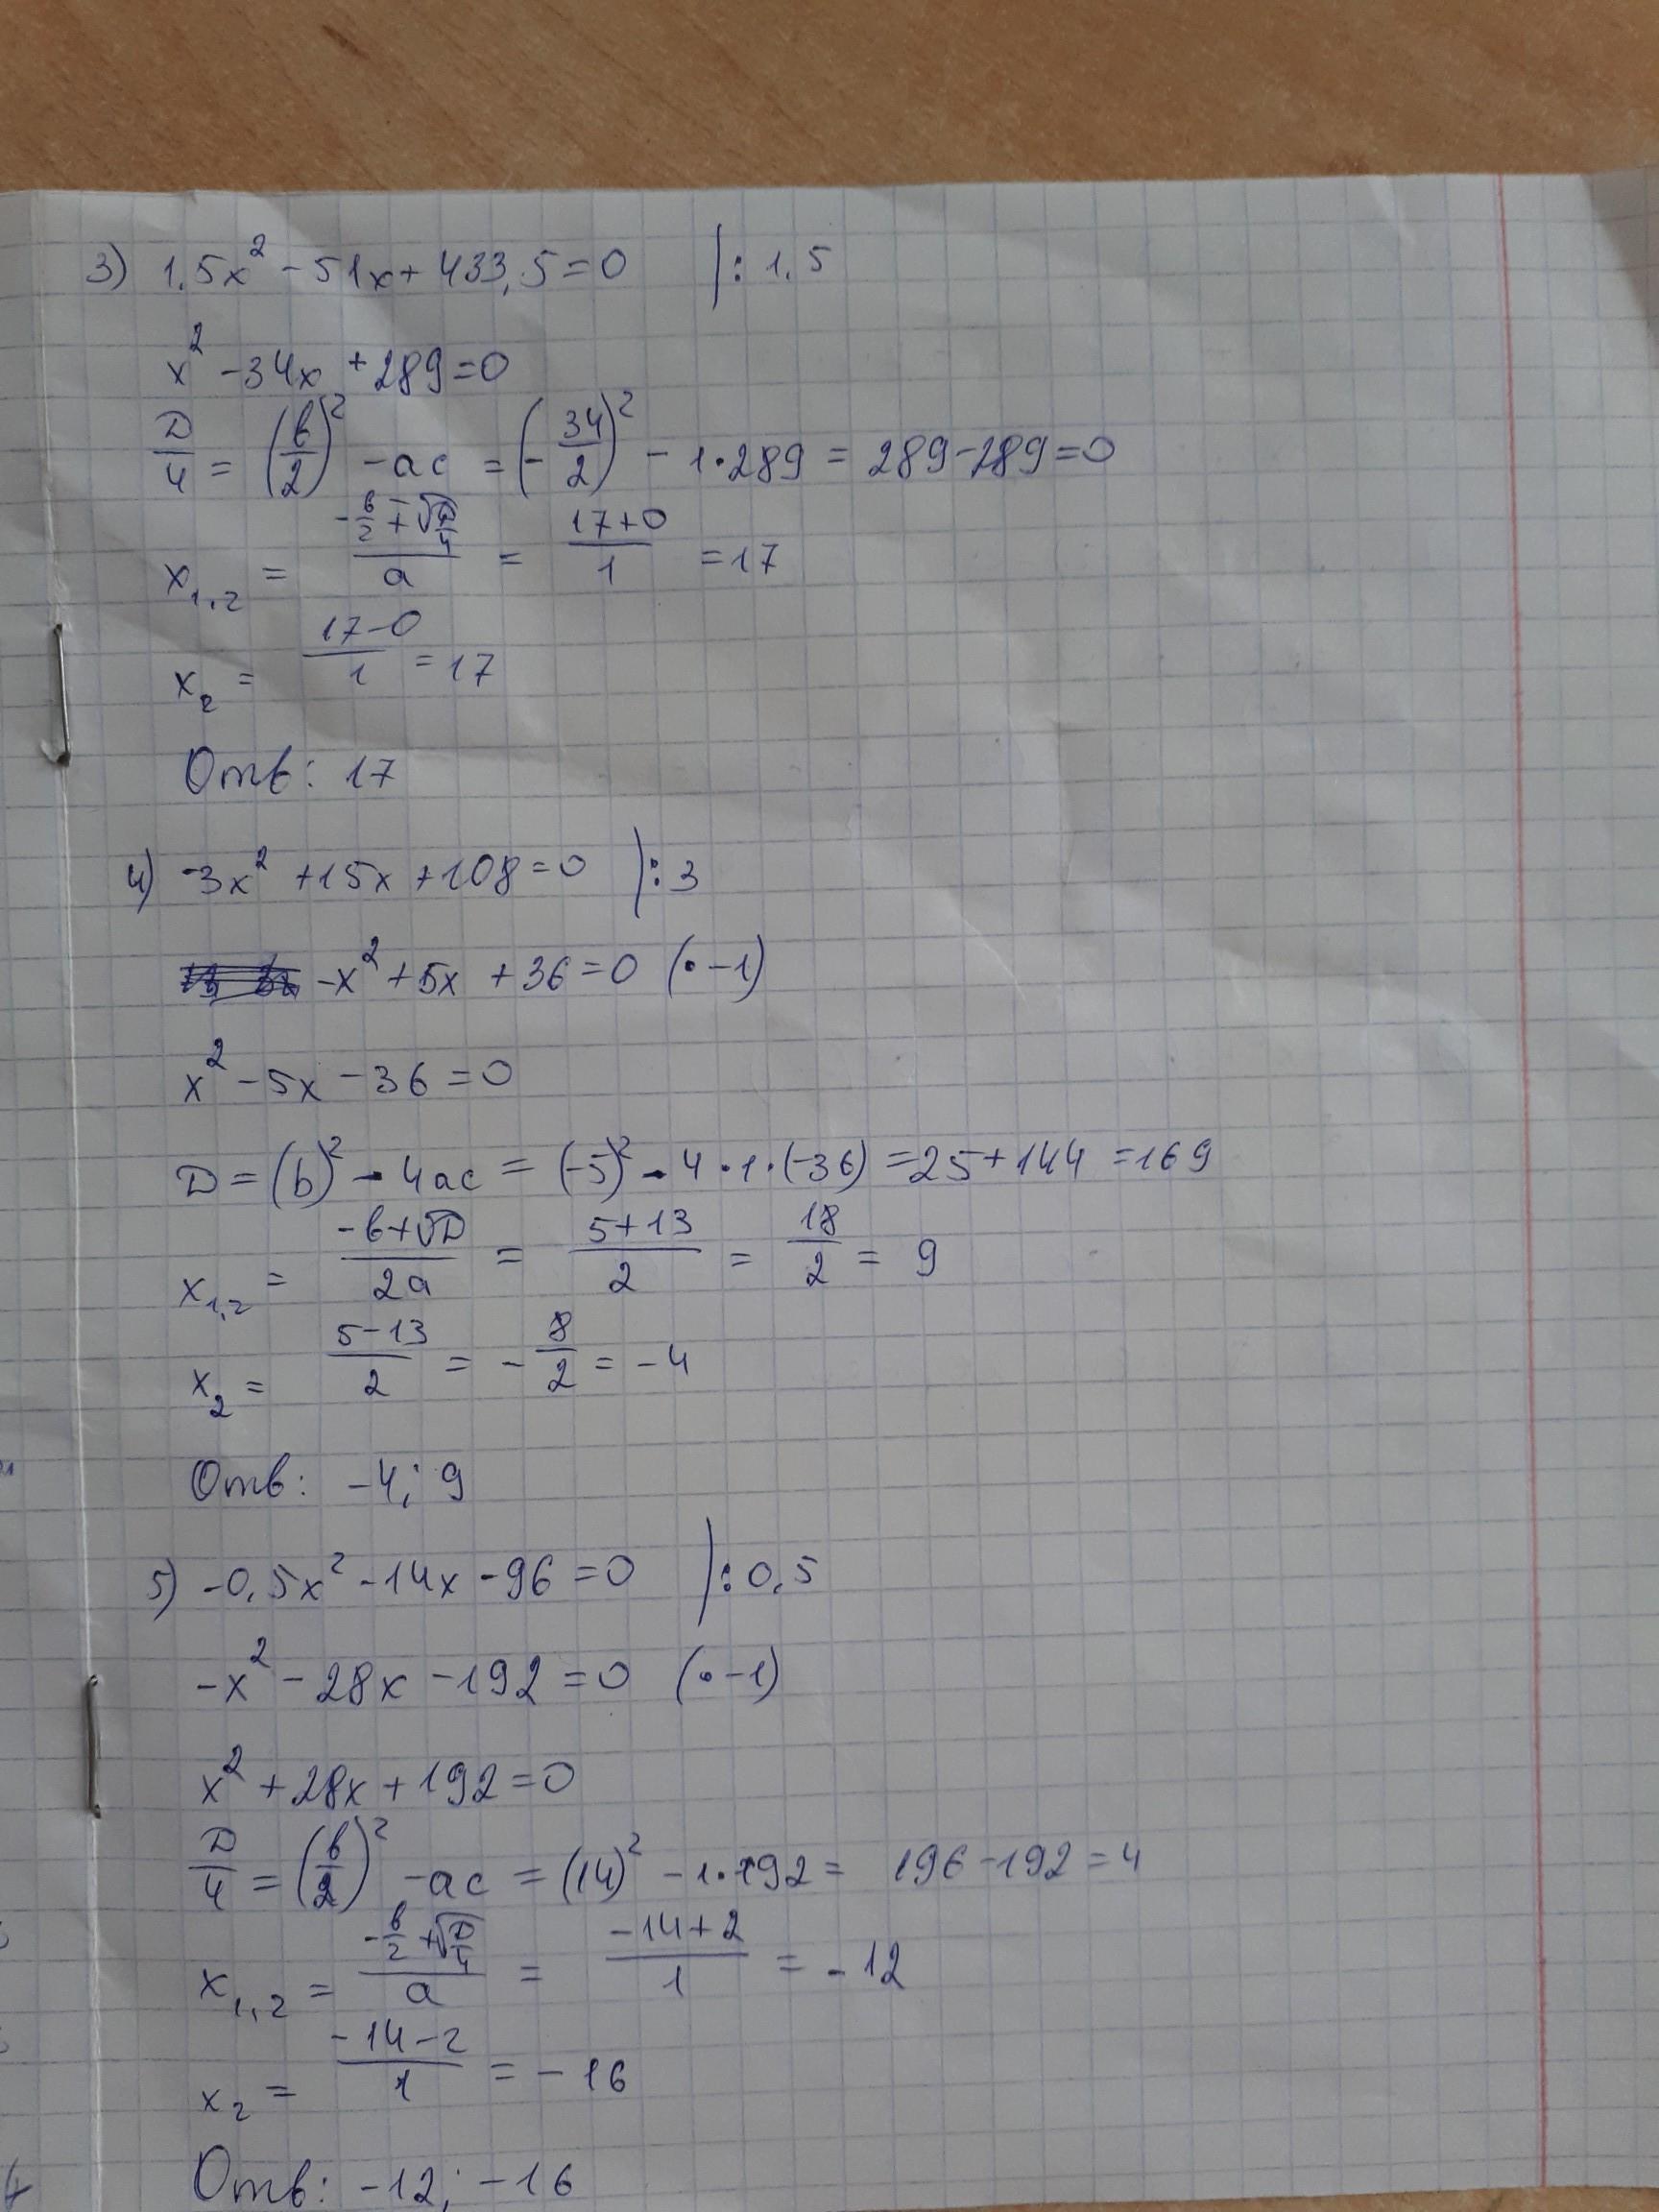 3) 1,5x² - 51x + 433,5 = 0 | : 1,5
x² - 34x + 289 = 0
D/4 = (b/2)² - ac = (-34/2)² - 1·289 = 289 - 289 = 0
x₁,₂ = (-b/2 ∓ √(D/4))/a = (17+0)/1 = 17
x₂ = (17-0)/1 = 17
Отв: 17
4) -3x² + 15x + 108 = 0 | : 3
-x² + 5x + 36 = 0 (· -1)
x² - 5x - 36 = 0
D = (b)² - 4ac = (-5)² - 4·1·(-36) = 25 + 144 = 169
x₁,₂ = (-b+√D)/2a = (5+13)/2 = 18/2 = 9
x₂ = (5-13)/2 = -8/2 = -4
Отв: -4; 9
5) -0,5x² - 14x - 96 = 0 | : 0,5
-x² - 28x - 192 = 0 (· -1)
x² + 28x + 192 = 0
D/4 = (b/2)² - ac = (14)² - 1·192 = 196 - 192 = 4
x₁,₂ = (-b/2 + √(D/4))/a = (-14+2)/1 = -12
x₂ = (-14-2)/1 = -16
Отв: -12; -16